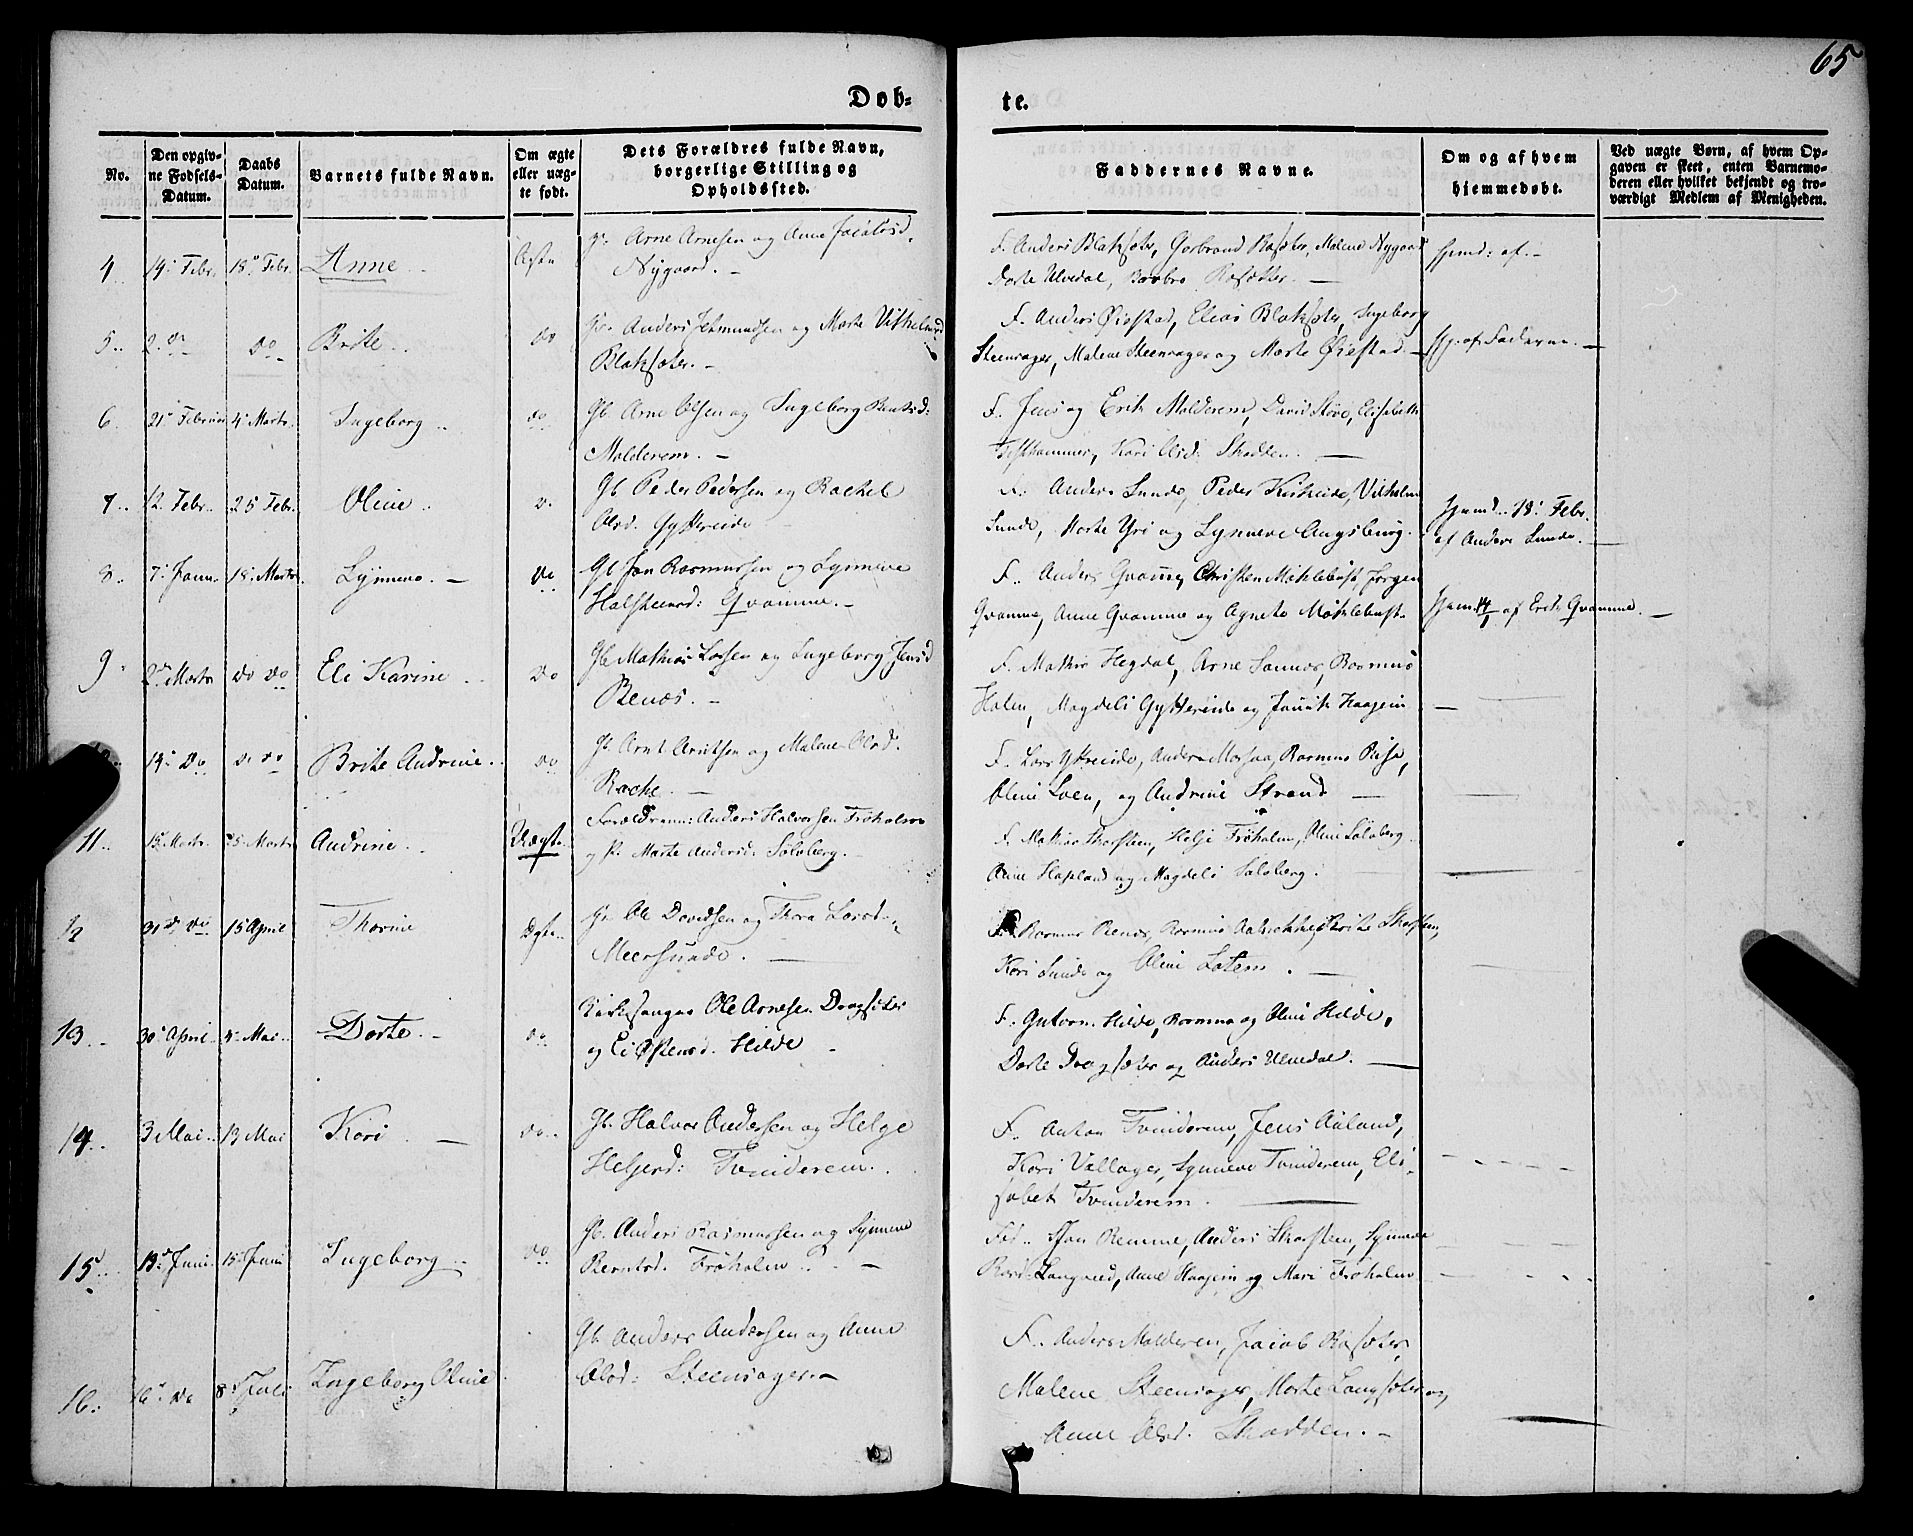 65
Døb-
te.
No.
Den opgiv-
ne Fødsels-
Datum.
Daabs
Datum.
Barnets fulde Navn.
Om ægte
eller uæg-
te født.
Dets Forældres fulde Navn,
borgerlige Stilling og
Opholdssted.
Faddernes Navne.
Om og af hvem
hjemmedøbt.
Ved uægte Børn, af hvem Op-
gaven er skeet, enten Barnemo-
deren eller hvilket bekjendt og tro-
værdigt Medlem af Menigheden.
4 14. Febr. 18. Febr. Anne Arne Arnesen og Anne Jacobsd.
Nygaard.
F. Anders Blaksæter, Gerbrand Rosæter, Malene Nygaard
Dorte Ulvedal, Barbro Rosæter.
5 2. do do Brite do Gb. Anders Jetmundsen og Marte Vilhelmsd
Blaksæter.
F. Anders Øiestad, Elias Blaksæter, Ingeborg
Steensager, Malene Steensager og Marte Øiestad. Hj. af Faderen.
6 21. Februar 4. Marts Ingeborg do Gb. Arne Olsen og Ingeborg Berntsd:
Molderem.
F. Jens og Erik Molderem, David Støve, Elisabeth
Kari Olsd. Skadden.
7 12. Febr. 25 Febr. Oline do Gb. Peder Pedersen og Rachel
Olsd. Gytreide
F. Anders Sunde, Peder Kirkeide, Vilhelm
Sunde, Marte Yri og Synneve Augsburg.
Hjemd. 13. Febr.
af Anders Sunde.
8 7. Janu. 18. Marts Synneve do Gb. Jon Rasmussen og Synneve
Halsteensd: Qvamme.
F. Anders Qvamme, Christen Mæklebust, Jørgen
Qvamme, Anne Qvamme og Agnete Mæklebust.
af Erik Qvamme.
9 2. Marts do do Eli Karine do Gb. Mathias Larsen og Ingeborg Jensd
Renæs.
F. Mathias Hegdal, Arne Sannes, Rasmus
Holen, Magdeli Gyttereide og Haagein
14. do do do Brite Andrine do Gb. Arnt Arntsen og Malene Olsd.
Rake.
F. Lars Ytreeide, Anders Mosaa, Rasmus
Oline Loen, og Andrine Strand
11 15. Marts 25. Marts Andrine Uægte Forældrene: Anders Halvorsen Frøholm
og P. Marte Andersd. Solsberg.
F. Mathias Skarsteen, Helje Frøholm, Oline Solsberg
Anne Hopland og Magdeli Solsberg.
12 31. do do 15 April Thorine Ægte Gb. Ole Davidsen og Thora Larsd.
Meersunde.
F. Rasmus Renæs, Rasmus Brite Skarsteen,
Kari Sunde og Oline Lotem.
13 30. April 4. Mai Dorte do Kirkesanger Ole Arnesen Dragsæter
og Hilde
F. Hilde, Rasmus og Oline Hilde,
Dorte Dragsæter og Anders Ulvedal.
14 3 Mai 13 Mai Kari do Gb. Halvor Andersen og Helge
Heljesd: Tvinderem.
F. Anton Tvinderem, Jens Auland,
Kari Vollager, Synneve Tvinderem, Eli-
sabet Tvinderem.
15 13. Juni 15. Juni Ingeborg do Gb. Anders Rasmussen og Synneve
Berntsd. Frøholm
Fad. Jon Remme, Anders Skarsteen, Synneve
Langved, Anne Haagein og Mari Frøholm
16 16. do 8. Juli Ingeborg Oline Gb. Anders Andersen og Anne
Olsd: Steensager.
F. Anders Molderem, Jacob Rosæter,
Malene Steensager, Marte Langsæter og
Anne Olsd. Skadden.